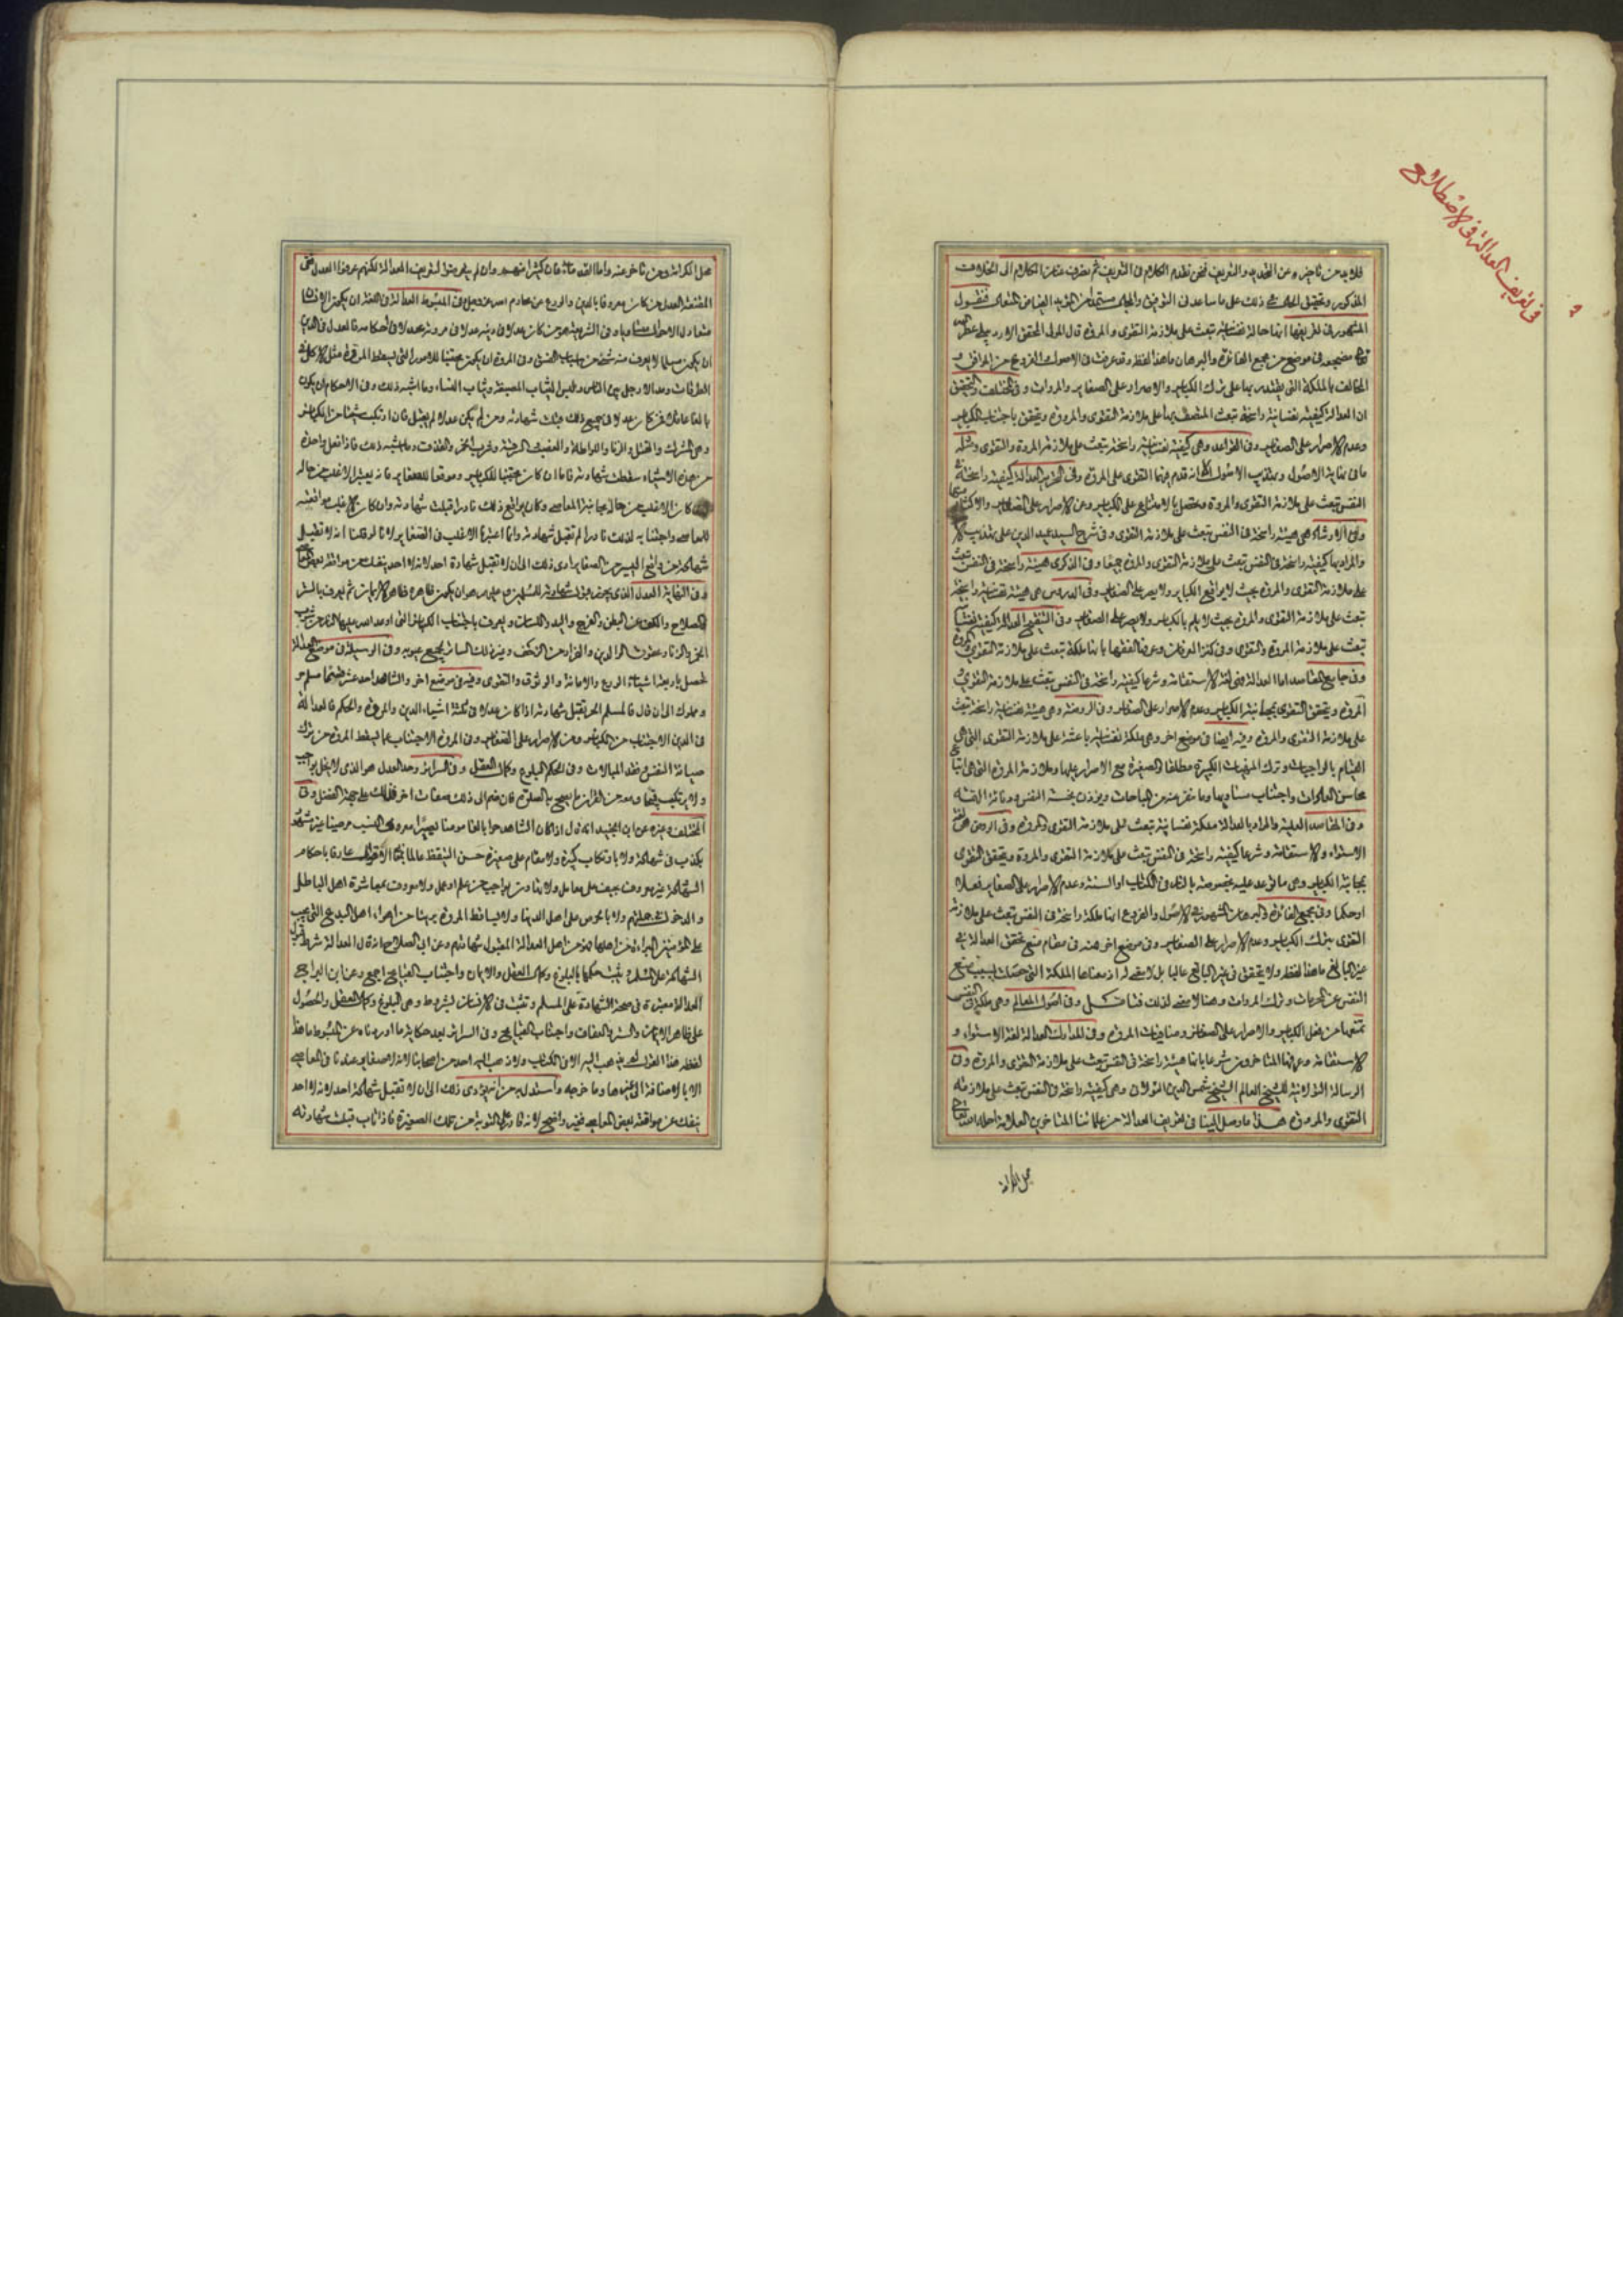 في تعريف العدالة في الاصطلاح
فلا بد من تأخيره عن التحديد والتعريف فنحن نقدم الكلام في التعريف ثم نصرف عنان الكلام الى الخلاف
المذكور وتحقيق الحق في ذلك على ما ساعدنى التوفيق والحق مستمدا من الفياض المتعال فنقول
المشهور في تعريفها انها حالة نفسانية تبعث على ملازمة التقوى والمروة قال المولى المحقق الاردبيلي عطر الله
مضجعه في موضع من مجمع الفائدة والبرهان ما هذا لفظه وقد عرفت في الاصول والفروع من الموافق و
المخالف بالملكة التي يقتدر بها على ترك الكباير والاصرار على الصغاير والمروات وفي المختلف والتحقيق
ان العدالة كيفية نفسانية راسخة تبعث المتصف بها على ملازمة التقوى والمروة ويتحقق باجتناب الكباير
وعدم الاصرار على الصغاير وفي القواعد وهي كيفية نفسانية راسخة تبعث على ملازمة المروة والتقوى ومثله
ما في نهاية الاصول وتهذيب الاصول الا انه قدم فيهما التقوى على المروة وفي التحرير العدالة كيفية راسخة في
النفس تبعث على ملازمة التقوى والمروة وتحصل بالامتناع عن الكباير وعن الاصرار على الصغاير
وفي الارشاد هي هيئة راسخة في النفس تبعث على ملازمة التقوى وفي شرح السيد عميد الدين على تهذيب
والمراد بها كيفية راسخة في النفس تبعث على ملازمة التقوى والمروة جميعا وفي الذكرى هيئة راسخة في النفس تبعث
على ملازمة التقوى والمروة بحيث لا يواقع الكباير ولا يصر على الصغاير وفي الدروس هي هيئة نفسانية راسخة
تبعث على ملازمة التقوى والمروة بحيث لا يلم بالكباير ولا يصر على الصغاير وفي التنقيح العدالة كيفية نفسانية
تبعث على ملازمة المروة والتقوى وفي كنز العرفان وعرفها الفقهاء بانها ملكة تبعث على ملازمة التقوى والمروة
وفي جامع المقاصد اما العدالة فهي لغة الاستقامة وشرعا كيفية راسخة في النفس تبعث على ملازمة التقوى و
المروة ويتحقق التقوى بمجانبة الكباير وعدم الاصرار على الصغاير وفي الروضة وهي هيئة نفسانية راسخة تبعث
على ملازمة التقوى والمروة وفيه ايضا في موضع اخر وهي ملكة نفسانية باعثة على ملازمة التقوى التي هي
القيام بالواجبات وترك المنهيات الكبيرة مطلقا والصغيرة مع الاصرار عليها وملازمة المروة التي هي اتباع
محاسن العادات واجتناب مساويها وما ينفر عنه من المباحات ويؤذن بخسة النفس ودنائة الهمة
وفي المقاصد العلية والمراد بالعدالة ملكة نفسانية تبعث على ملازمة التقوى والمروة وفي الروض هي لغة
الاستواء والاستقامة وشرعا كيفية راسخة في النفس تبعث على ملازمة التقوى والمروة ويتحقق التقوى
بمجانبة الكباير وهي ما توعد عليه بخصوصه بالنار في الكتاب او السنة وعدم الاصرار على الصغاير فعلا
او حكما وفي مجمع الفائدة والبرهان المشهور في الاصول والفروع انها ملكة راسخة في النفس تبعث على ملازمة
التقوى بترك الكباير وعدم الاصرار على الصغاير وفي موضع اخر منه في مقام منع تحقق العدالة في
غير البالغ ما هذا لفظه ولا يتحقق في غير البالغ غالبا بل لا معنى له اذ معناها الملكة التي حصلت بسبب منع
النفس عن المحرمات وترك المروات وهنا لا معنى لذلك فتامل وفي اصول المعالم وهي ملكة في النفس
تمنعها من فعل الكباير والاصرار على الصغاير ومنافيات المروة وفي المدارك العدالة لغة الاستواء و
الاستقامة وعرفها المتاخرون شرعا بانها هيئة راسخة في النفس تبعث على ملازمة التقوى والمروة وفي
الرسالة للشيخ العالم الشيخ شمس الدين وهي كيفية راسخة في النفس تبعث على ملازمة
التقوى والمروة هذا ما وصل الينا في تعريف العدالة من علمائنا المتاخرين العلامة احله الله تعالى
محل الكرامة
محل الكرامة ومن تاخر عنه واما القدماء فان كثيرا منهم وان لم يتعرضوا لتعريف العدالة لكنهم عرفوا العدل ففي
المقنعة العدل من كان معروفا بالدين والورع عن محارم الله عز وجل وفي المبسوط العدالة في اللغة ان يكون الانسان
متعادل الاحوال متساويا وفي الشريعة هو من كان عدلا في دينه عدلا في مروته عدلا في احكامه فالعدل في الدين
ان يكون مسلما لا يعرف منه شيء من اسباب الفسق وفي المروة ان يكون مجتنبا للامور التي تسقط المروة مثل الاكل في
الطرقات ومد الارجل بين الناس ولبس الثياب المصبغة وثياب النساء وما اشبه ذلك وفي الاحكام ان يكون
بالغا عاقلا فمن كان عدلا في جميع ذلك قبلت شهادته ومن لم يكن عدلا لم يقبل فان ارتكب شيئا من الكباير
وهي الشرك والقتل والزنا واللواط والغصب والسرقة وشرب الخمر والقذف وما اشبه ذلك فاذا فعل واحدة
من هذه الاشياء سقطت شهادته فاما ان كان مجتنبا للكباير ومواقعا للصغاير فانه يعتبر الاغلب من حاله
كان الاغلب من حاله مجانبة المعاصي وكان يواقع ذلك نادرا قبلت شهادته وان كان الاغلب مواقعته
للمعاصي واجتنابه لذلك نادرا لم تقبل شهادته وانما اعتبرنا الاغلب في الصغاير لانا لو قلنا انه لا تقبل
شهادة من واقع اليسير من الصغاير ادى ذلك الى ان لا تقبل شهادة احد لانه لا احد ينفك من مواقعة بعض المعاصي
وفي النهاية العدل الذي يجوز قبول شهادته للمسلمين وعليهم هو ان يكون ظاهره ظاهر الايمان ثم يعرف بالستر
والصلاح والكف عن البطن والفرج واليد واللسان ويعرف باجتناب الكباير التي اوعد الله عليها النار من شرب
الخمر والزنا وعقوق الوالدين والفرار من الزحف وغير ذلك الساتر لجميع عيوبه وفي الوسيلة في موضع العدالة
تحصل باربعة اشياء الورع والامانة والوثوق والتقوى وفيه في موضع اخر والشاهد احد عشر مسلم حر
ومملوك الى ان قال فالمسلم الحر تقبل شهادته اذا كان عدلا في ثلثة اشياء الدين والمروة والحكم فالعدالة
في الدين الاجتناب من الكباير ومن الاصرار على الصغاير وفي المروة الاجتناب عما يسقط المروة من ترك
صيانة النفس وفقد المبالات وفي الحكم البلوغ وكمال العقل وفي السرائر وحد العدل هو الذي لا يخل بواجب
ولا يرتكب قبيحا
المختلف وغيره عن ابن الجنيد انه قال اذا كان الشاهد حرا بالغا مومنا بصيرا معروف النسب مرضيا غير مشهور
بكذب في شهادة ولا بارتكاب كبيرة ولا مقام على صغيرة حسن التيقظ عالما بمعاني الاقوال عارفا باحكام
الشهادة غير معروف بحيف على معامل ولا بتهاون بواجب من علم او عمل ولا معروف بمعاشرة اهل الباطل
و الدخول في جملتهم ولا بالحرص على الدنيا ولا بساقط المروة بريئا من اهواء اهل البدع التي يجب
على المؤمنين البرائة من اهلها فهو من اهل العدالة المقبول شهادتهم وعن ابي الصلاح انه قال العدالة شرط قبول
الشهادة على المسلم ويثبت حكمها بالبلوغ وكمال العقل والايمان واجتناب القبايح اجمع وعن ابن البراج
العدالة معتبرة في صحة الشهادة على المسلم وتثبت في الانسان بشروط وهي البلوغ وكمال العقل والحصول
على ظاهر الايمان والستر والعفاف واجتناب القبايح وفي السرائر بعد حكاية ما اوردناه عن المبسوط ما هذا
لفظه هذا القول لم يذهب اليه الا في هذا الكتاب ولا ذهب اليه احد من اصحابنا لانه لا صغاير عندنا في المعاصي
الا بالاضافة الى غيرها وما خرجه واستدل به من انه يودى ذلك الى ان لا تقبل شهادة احد لانه لا احد
ينفك عن مواقعة بعض المعاصي فغير واضح لانه قادر على التوبة من تلك الصغيرة فاذا تاب قبلت شهادته